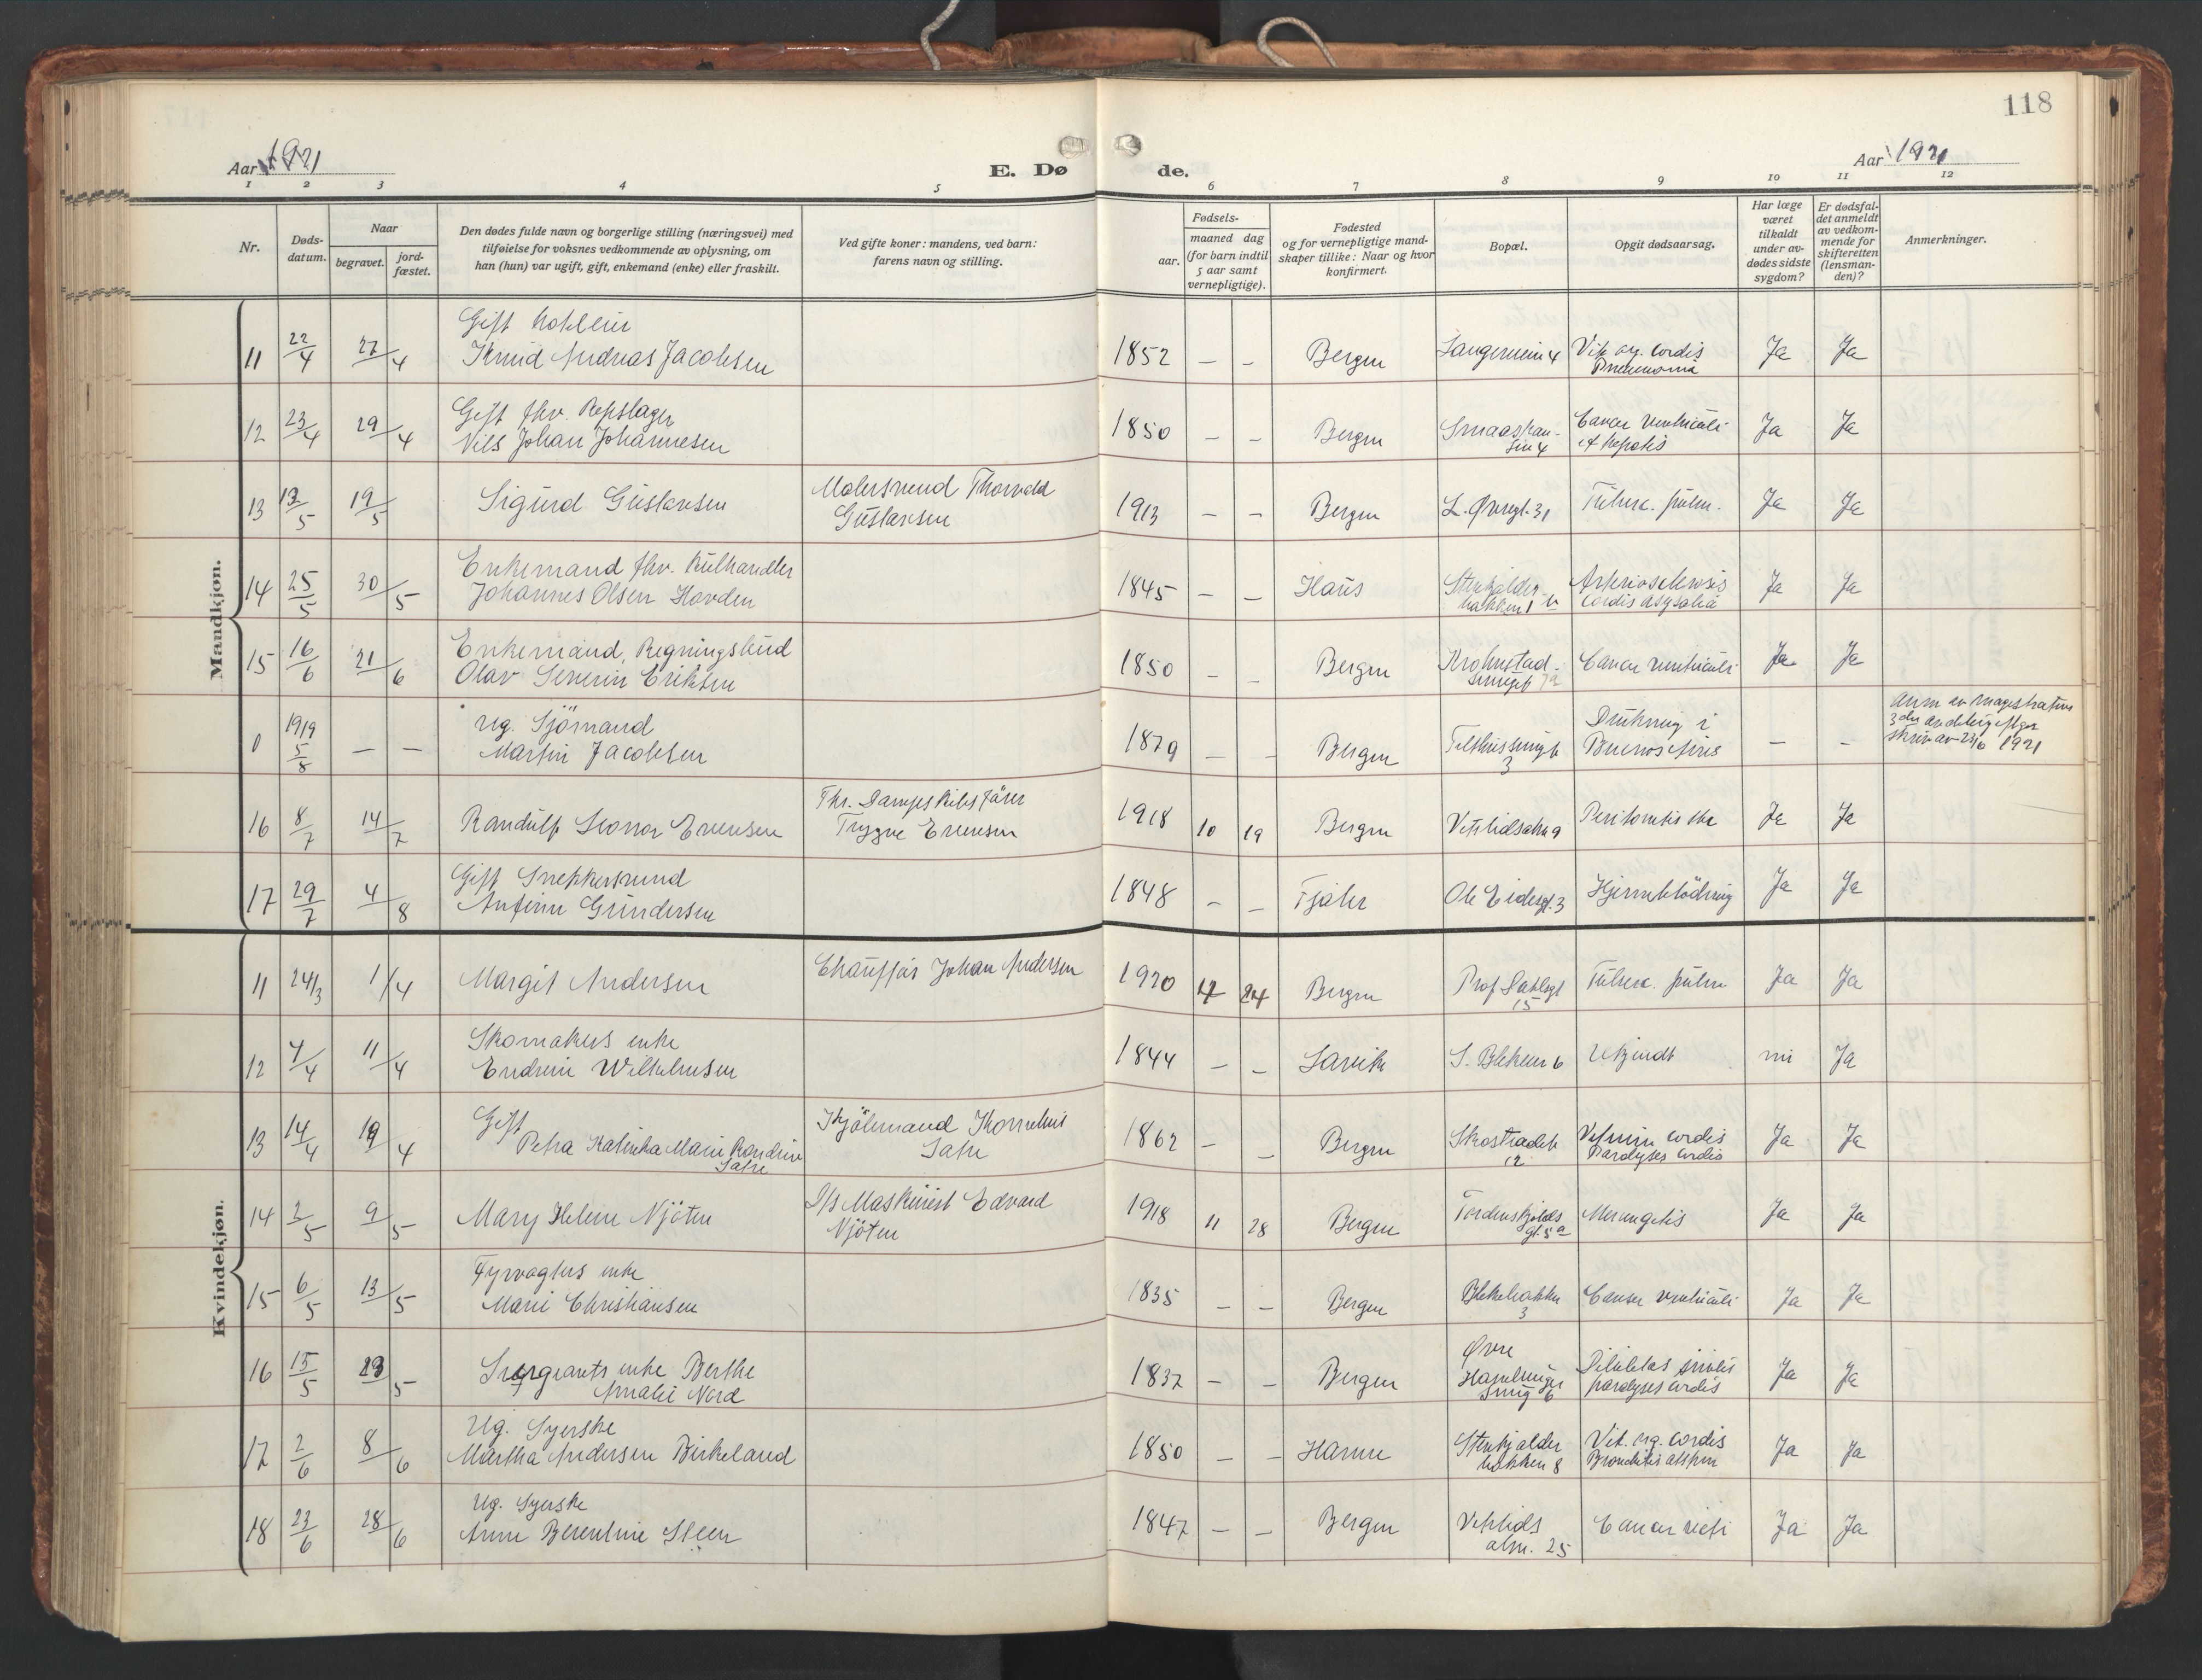 118
Aar 1921
E. Dø
de.
Aar 1921
1 2 3 4 5 6 7 8 9 10 11 12
Nr.
Døds-
datum.
Naar
begravet.
jord-
fæstet.
Den dødes fulde navn og borgerlige stilling (næringsvei) med
tilføielse for voksnes vedkommende av oplysning, om
han (hun) var ugift, gift, enkemand (enke) eller fraskilt.
Ved gifte koner: mandens, ved barn:
farens navn og stilling.
Fødsels-
aar.
maaned dag
(for barn indtil
5 aar samt
vernepligtige).
Fødested
og for vernepligtige mand-
skaper tillike: Naar og hvor
konfirmert.
Bopæl.
Opgit dødsaarsag.
Har læge
været
tilkaldt
under av-
dødes sidste
sygdom?
Er dødsfal-
det anmeldt
av vedkom-
mende for
skifteretten
(lensman-
den)?
Anmerkninger.
Mandkjøn.
Gift
11 22/4 27/4 Knud Andreas Jacobsen 1852 — — Bergen 4 Vit. org. cordis Ja Ja
Pneumonia
Gift fhv. Repslager
12 23/4 29/4 Nils Johan Johannesen 1850 — — Bergen Cancer ventriculi Ja Ja
4 et hepatis
Malersvend Thorvald
13 13/5 19/5 Sigurd Gustavsen 1913 — — Bergen L. Øvregt. 31 Tuberc. pulm. Ja Ja
Gustavsen
Enkemand fhv. Kulhandler
14 25/5 30/5 Johannes Olsen Hovden 1845 — — Haus Stenkjelder- Arteriosclerosis Ja Ja
bakken 1 b cordis
Enkemand, Regningsbud
15 16/6 21/6 Olav Severin Eriksen 1850 — — Bergen Krohnstad- Cancer ventriculi Ja Ja
smuget
Ug. Sjömand
0 1919 5/8 — — Martin Jacobsen 1879 — — Bergen Drukning i — —
3 Buenos Aires
1921
Fhr. Dampskibsförer
16 8/7 14/7 Randulf Leonor Evensen 1918 10 19 Bergen Vetrlidsalm 9 Peritonitis Ja Ja
Trygve Evensen
Gift Snekkersvend
17 29/7 4/8 Anfinn Gundersen 1848 — — Fjäler Ole Eidesgt. 3 Hjerneblödning Ja Ja
Kvindekjøn.
11 24/3 1/4 Margit Andersen Chauffør Johan Andersen 1920 12 24 Bergen Prof. Dahlsgt Tuberc. pulm Ja Ja
15
Skomakers enke
12 4/4 11/4 Endrine Wilhelmsen 1844 — — Lavik S. Blekevei 6 Ukjendt nei Ja
Gift Kjölemand Kornelius
13 14/4 19/4 Petra Katinka Marie Sätre 1862 — — Bergen Skostrædet Vitium cordis Ja Ja
12 Paralyses cordis
D/s Maskinist Edvard
14 2/5 9/5 Mary Helene Njöten 1918 11 28 Bergen Tordenskjolds Meningitis Ja Ja
Njöten gt. 5 a
Fyrvagters enke
15 6/5 13/5 Marie Christiansen 1835 — — Bergen Blekebakken Cancer ventriculi Ja Ja
3
16 15/5 23/5 Sergeants enke Berthe 1837 — — Bergen Øvre Ja Ja
Amalie Nord smug 6 paralyses cordis
Ug. Syerske
17 2/6 8/6 Martha Andersen Birkeland 1850 — — Stenkjelder Vit. org. cordis Ja Ja
bakken 8
Ug. Syerske
18 23/6 28/6 Anne Berentine Steen 1847 — — Bergen Vetrlids Cancer recti Ja Ja
alm. 25